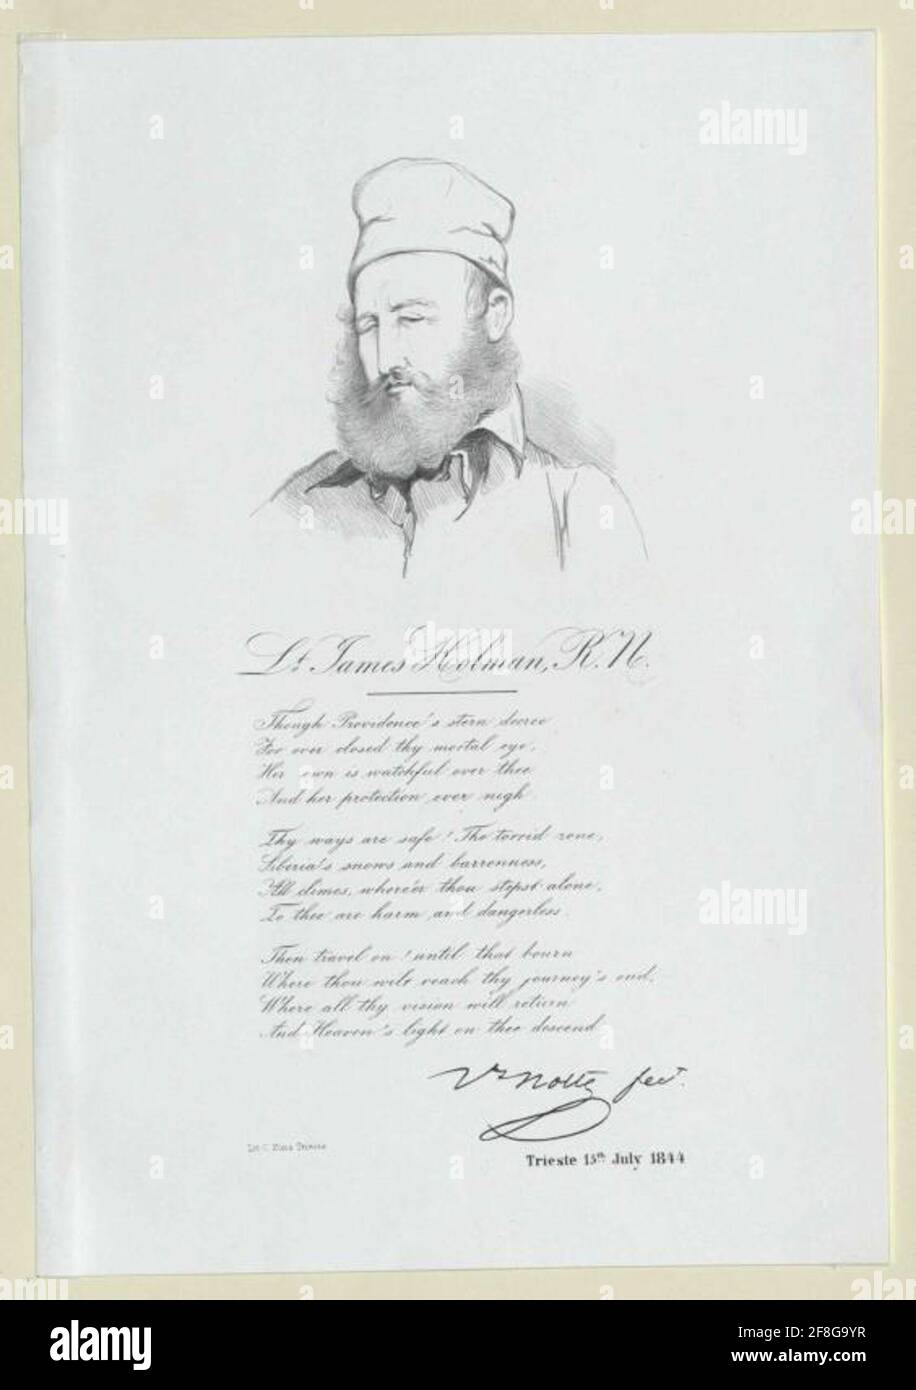 Lt. James Holman, R.N.
Though Providence's stern decree
For ever closed thy mortal eye,
Her own is watchful over thee
And her protection ever nigh.
Thy ways are safe! The torrid zone,
Siberia's snows and barrenness,
All climes, where'er thou stepst alone,
To thee are harm and dangerless.
Then travel on! until that bourn
Where thou wilt reach thy journey's end,
Where all thy vision will return
And Heaven's light on thee descend
fect.
Lit. Trieste
Trieste 15th July 1844
alamy
alamy
Image ID: 2F8G9YR
www.alamy.com